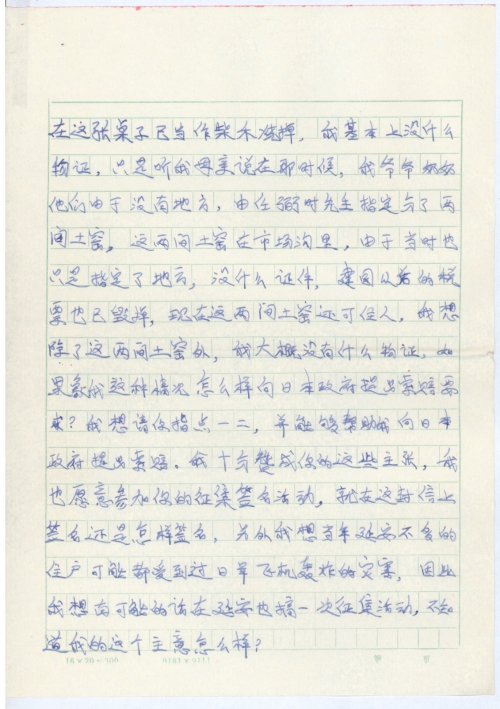 在这张桌子已当作柴木烧掉，我基本上没什么
物证，只是听我母亲说在那时候，我爷爷奶奶
他们由于没有地方，由任弼时先生指定了两
间土窑，这两间土窑在市场沟里，由于当时也
只是指定了地方，没什么证件，建国以前的粮
票也已毁掉，现在这两间土窑还可住人，我想
除了这两间土窑外，我大概没有什么物证，如
果象我这种情况怎么样向日本政府提出索赔要
求？我想请你指点一二，并能够帮助我向日本
政府提出索赔。我十分赞成你的这些主张，我
也愿意参加你的征集签名活动，就在这封信上
签名还是怎样签名，另外我想当年延安不舍的
住户可能都受到过日军飞机轰炸的灾害，因此
我想有可能的话在延安也搞一次征集活动，不知
道我的这个主意怎么样？